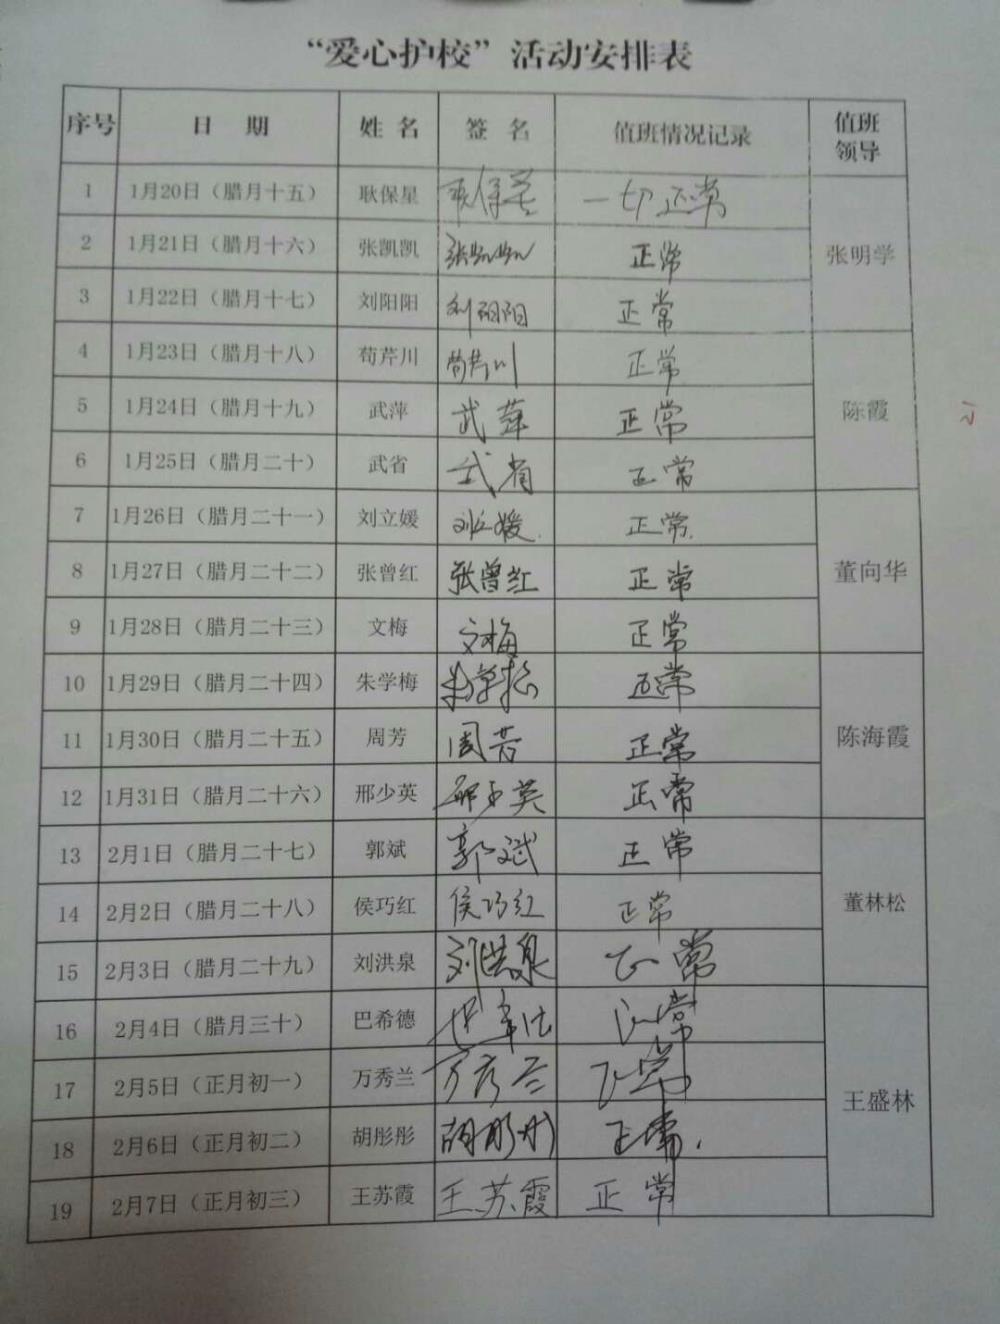 “爱心护校”活动安排表
序号 日 期 姓 名 签 名 值班情况记录 值班领导
1 1月20日（腊月十五） 耿保星 耿保星 一切正常 张明学
2 1月21日（腊月十六） 张凯凯 张凯凯 正常
3 1月22日（腊月十七） 刘阳阳 刘阳阳 正常
4 1月23日（腊月十八） 苟芹川 苟芹川 正常 陈霞
5 1月24日（腊月十九） 武萍 武萍 正常
6 1月25日（腊月二十） 武省 武省 正常
7 1月26日（腊月二十一） 刘立媛 刘立媛 正常 董向华
8 1月27日（腊月二十二） 张曾红 张曾红 正常
9 1月28日（腊月二十三） 文梅 文梅 正常
10 1月29日（腊月二十四） 朱学梅 正常 陈海霞
11 1月30日（腊月二十五） 周芳 周芳 正常
12 1月31日（腊月二十六） 邢少英 邢少英 正常
13 2月1日（腊月二十七） 郭斌 郭斌 正常 董林松
14 2月2日（腊月二十八） 侯巧红 侯巧红 正常
15 2月3日（腊月二十九） 刘洪泉 刘洪泉 正常
16 2月4日（腊月三十） 巴希德 正常 王盛林
17 2月5日（正月初一） 万秀兰 万秀兰 正常
18 2月6日（正月初二） 胡彤彤 胡彤彤 正常.
19 2月7日（正月初三） 王苏霞 王苏霞 正常